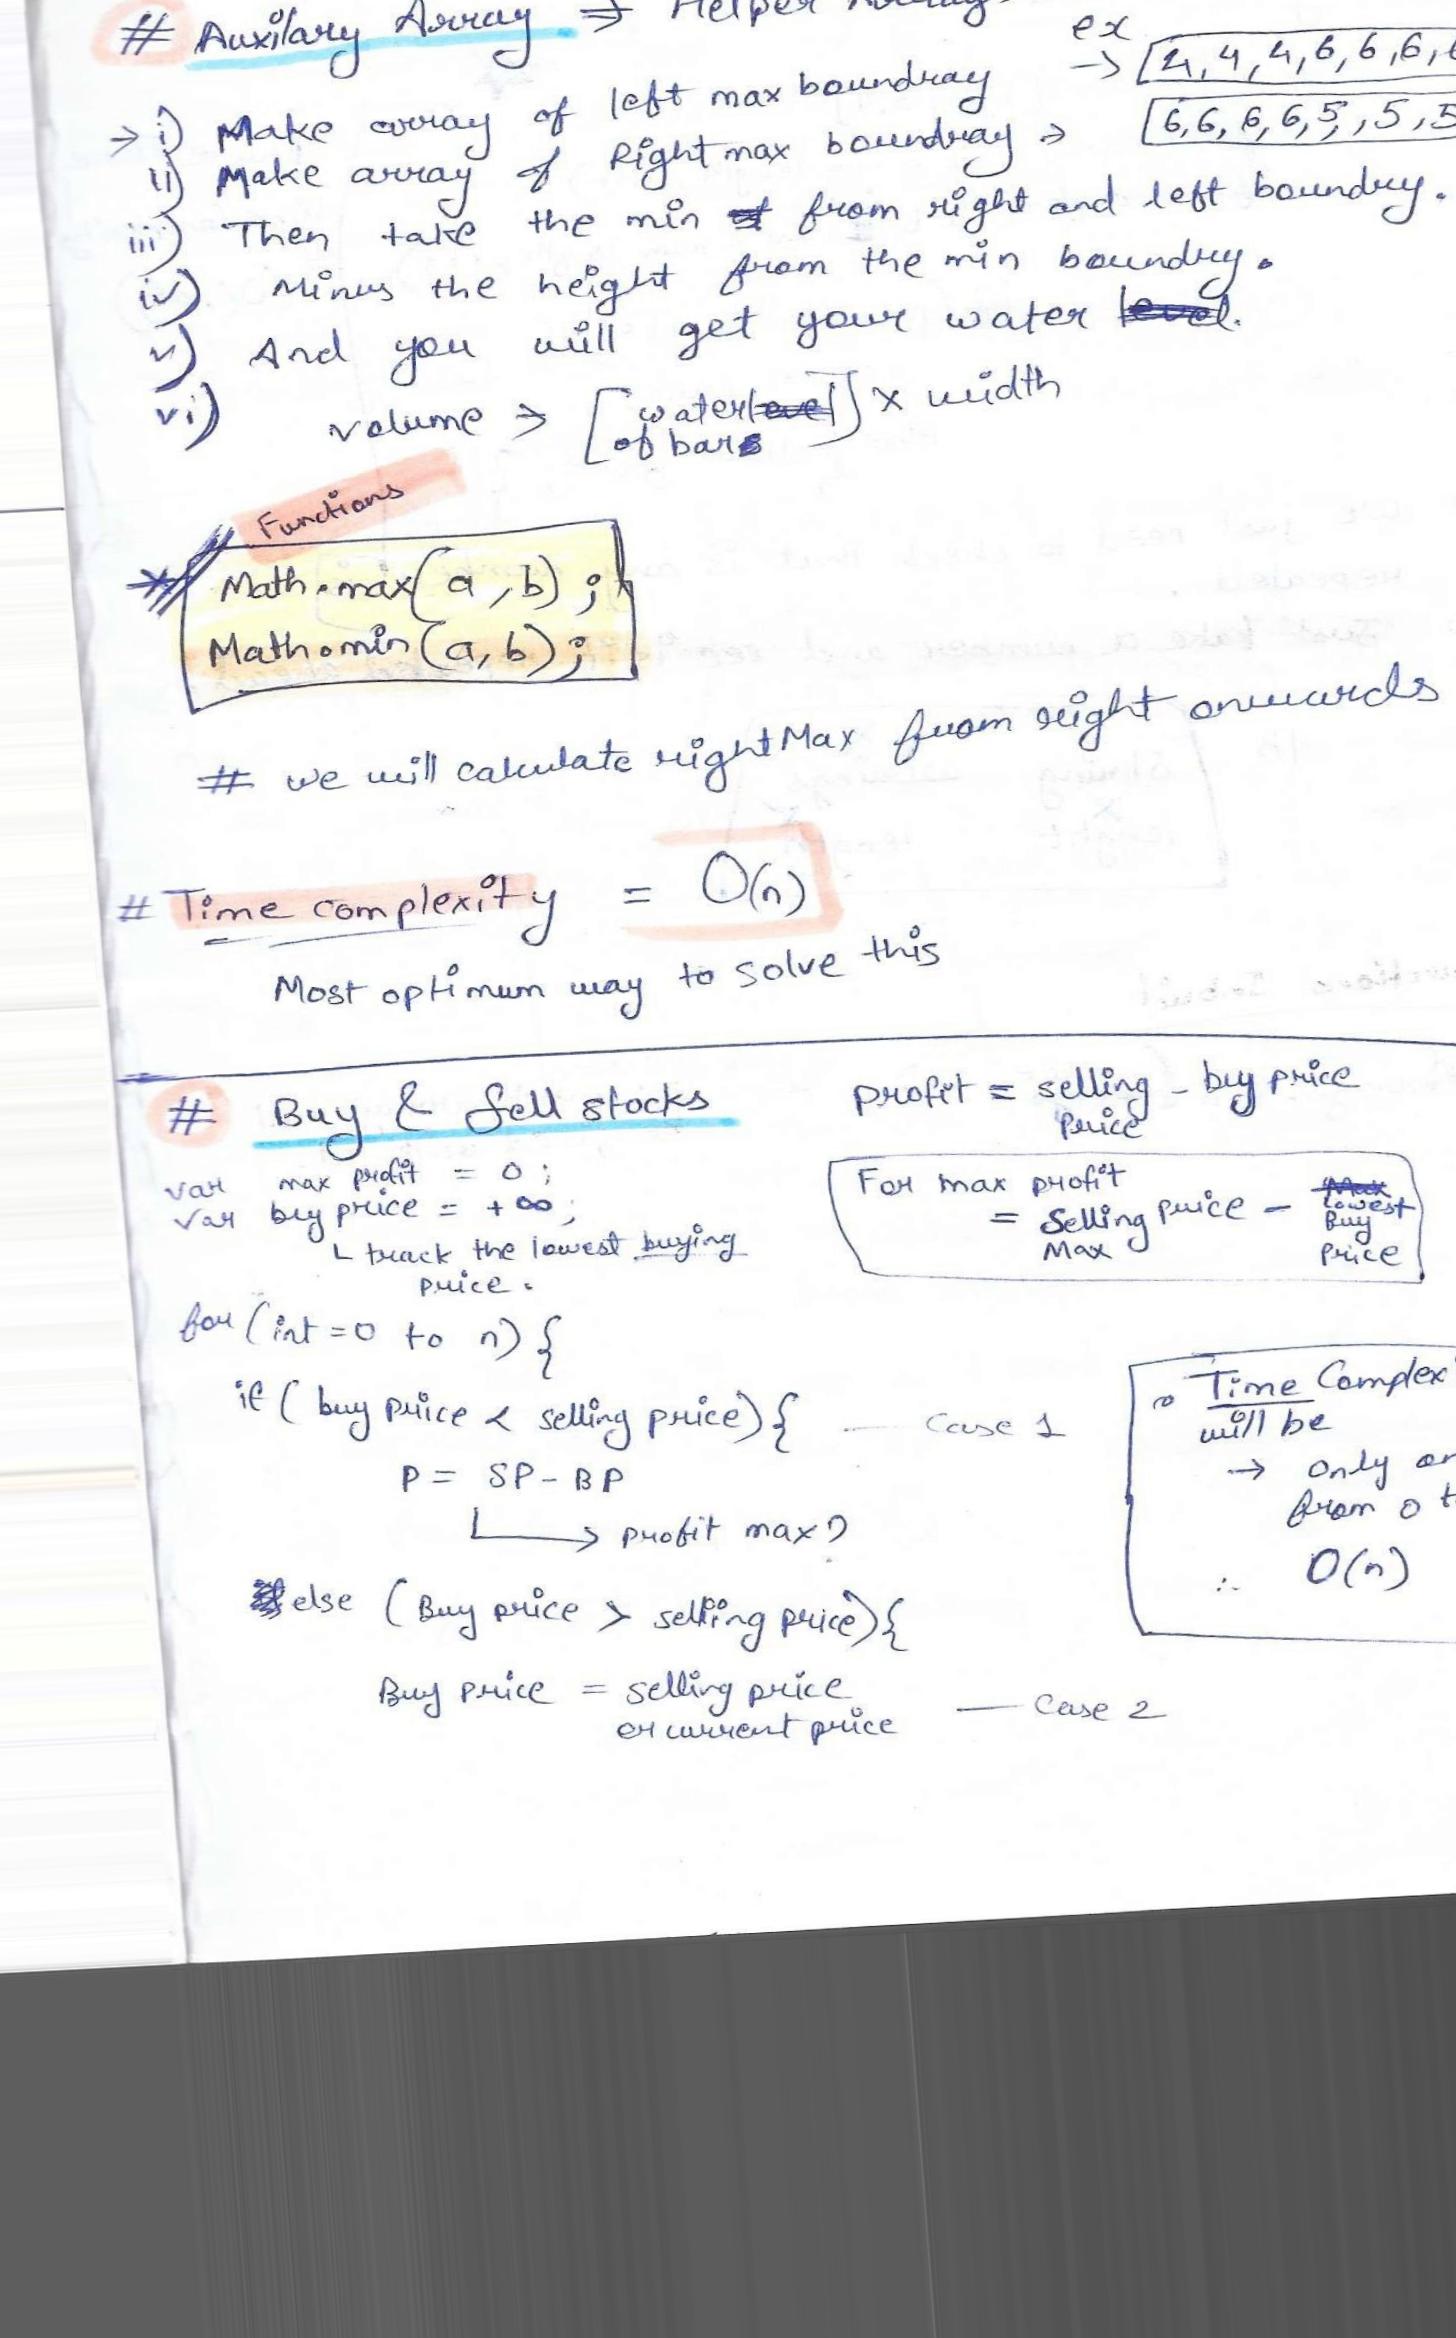 # Auxilary Array ⇒ Helper Array.
ex
→ [4, 4, 4, 6, 6, 6,
→ i) Make array of left max boundray
[6, 6, 6, 6, 5, 5, 5
ii) Make array of Right max boundray →
iii) Then take the min from right and left boundry.
iv) Minus the height from the min boundry.
v) And you will get your water level.
vi) volume → [water level of bars] x width
Functions
Math.max(a, b);
Math.min(a, b);
# we will calculate rightMax from right onwards
# Time complexity = O(n)
Most optimum way to solve this
# Buy & Sell stocks
Profit = selling price - buy price
var max profit = 0;
var buy price = +∞;
└ track the lowest buying
price.
For max profit
= Selling price Max - Max lowest Buy Price
for (int = 0 to n) {
if (buy price < selling price) { — Case 1
P = SP - BP
└→ profit max?
else (Buy price > selling price) {
Buy price = selling price
or current price — Case 2
Time Complex
will be
→ only
from 0
∴ O(n)